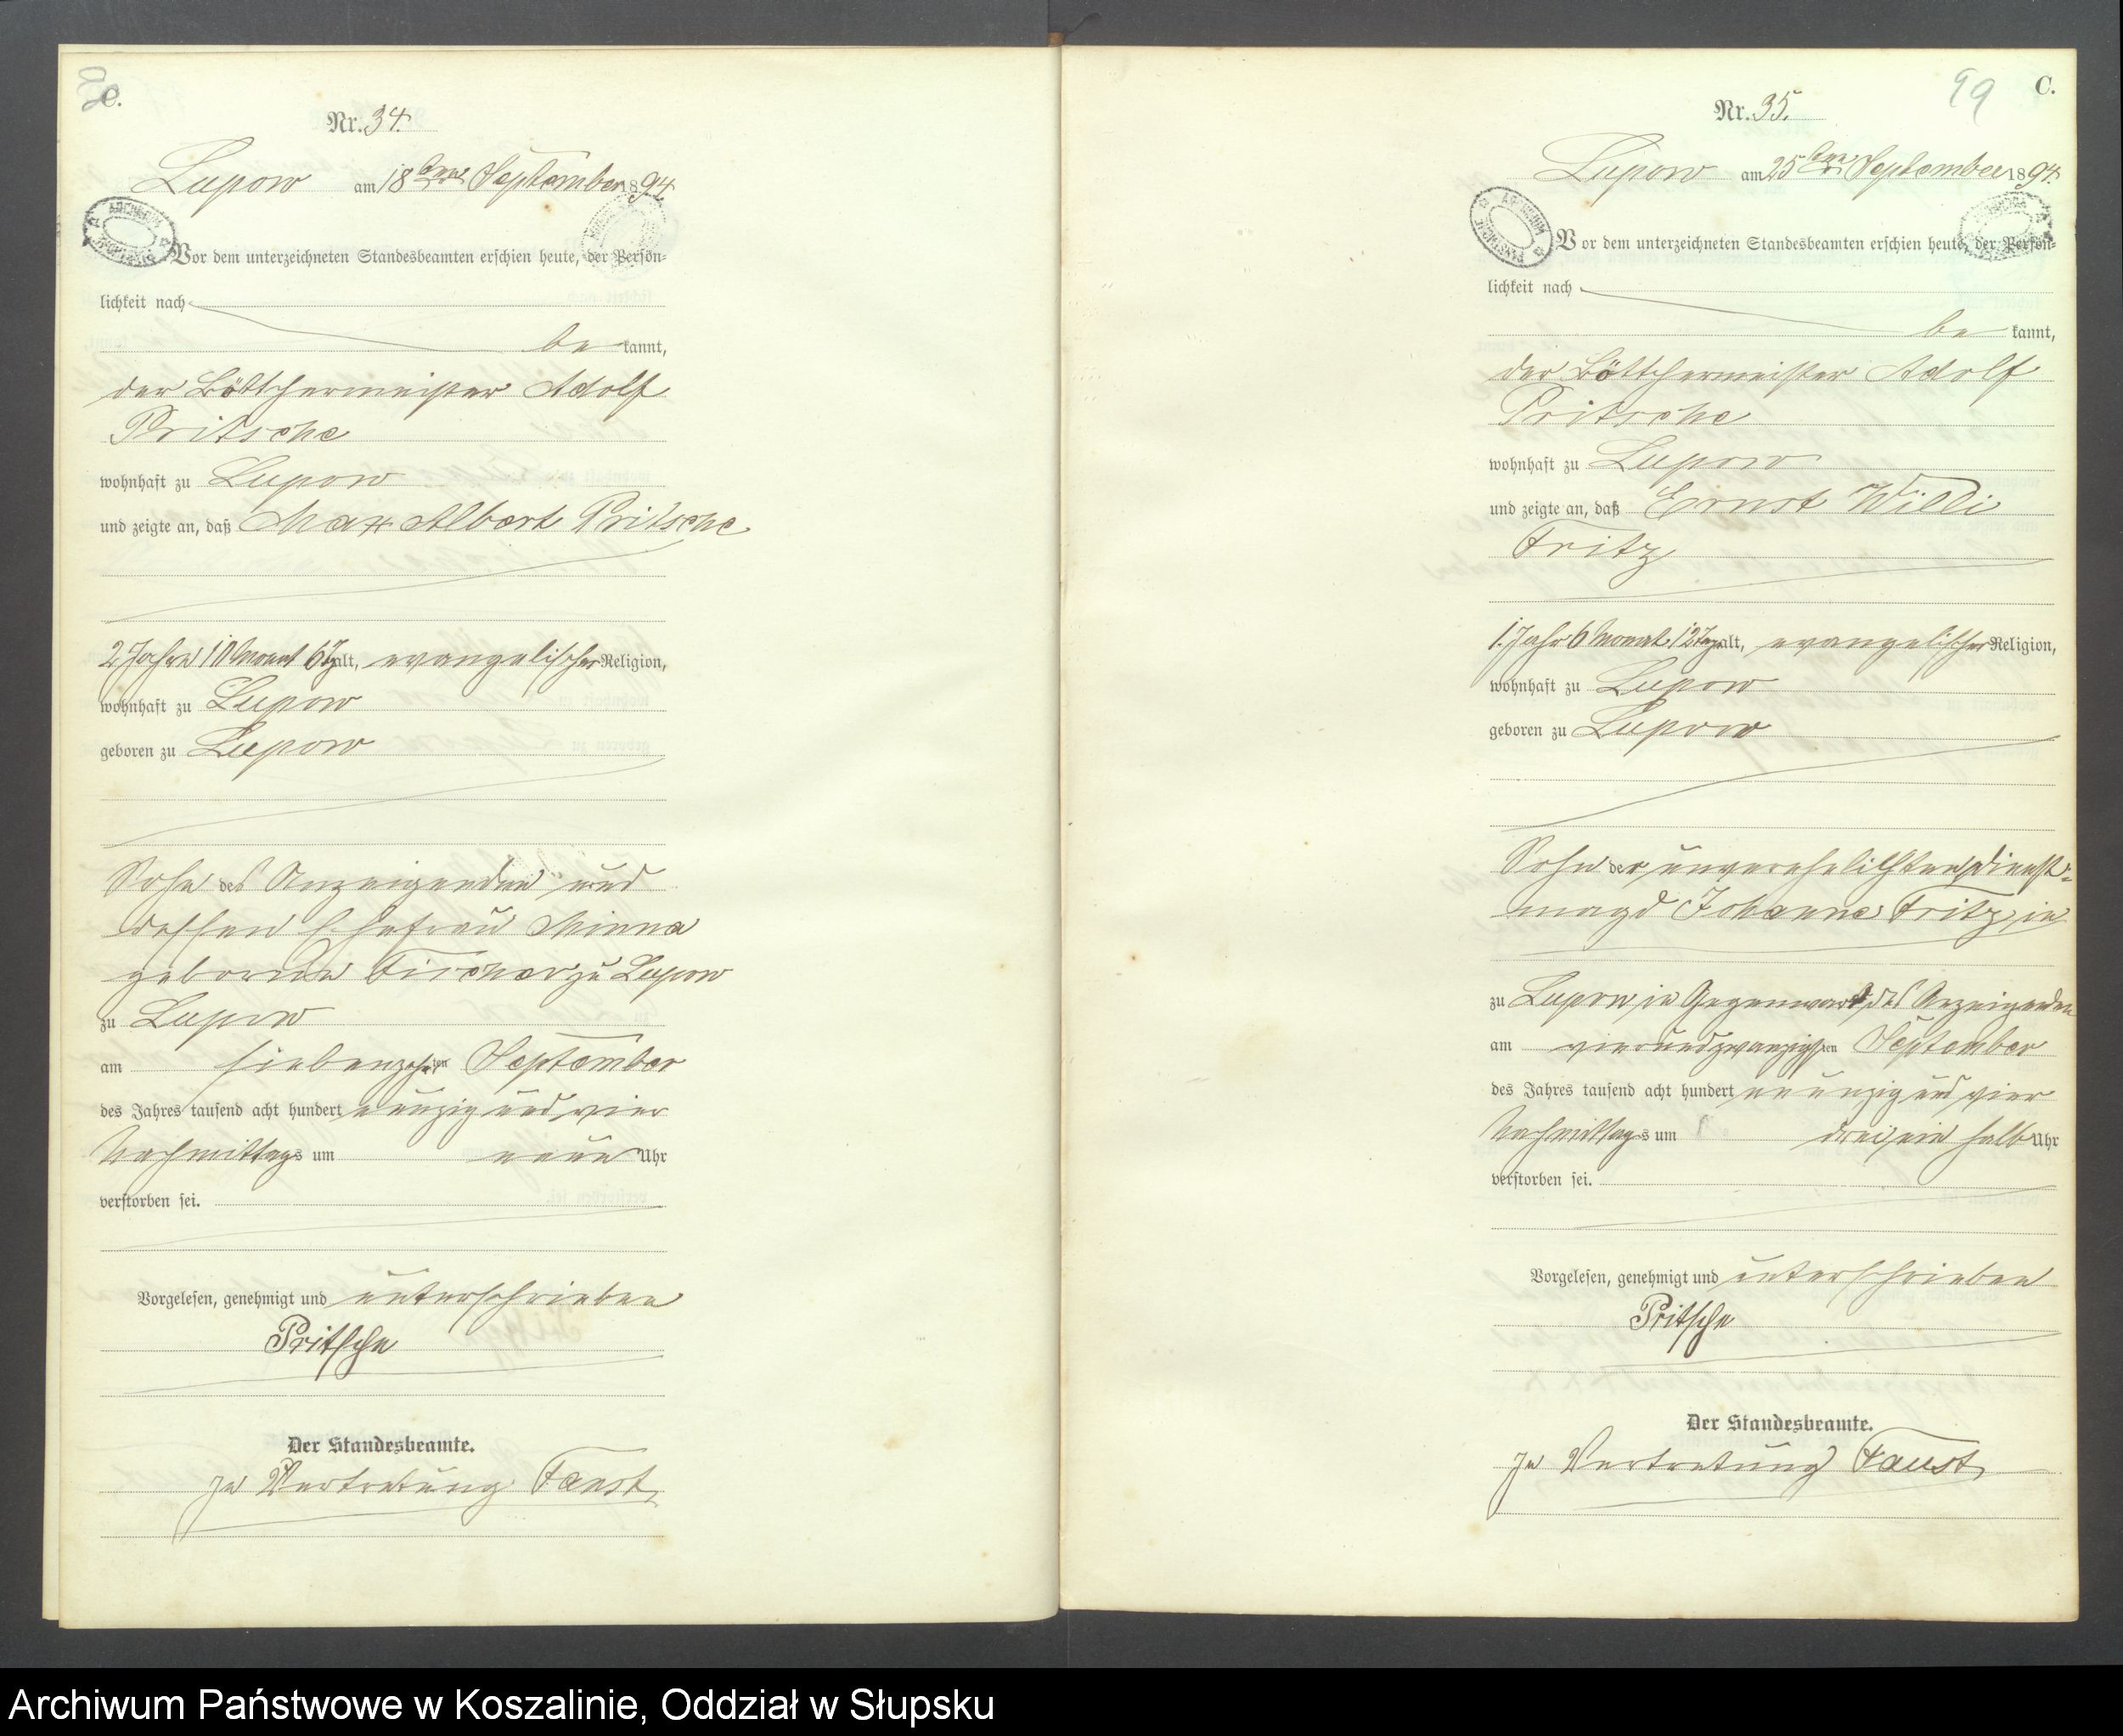 C.
Nr. 34.
Lupow am 18ten September 1894
ARCHIWUM PAŃSTWOWE
Vor dem unterzeichneten Standesbeamten erschien heute, der Persön-
lichkeit nach
be kannt,
der Böttchermeister Adolf
Pritsche
wohnhaft zu Lupow
und zeigte an, daß Max Albert Pritsche
2 Jahre 10 Monat 6 Tg alt, evangelischer Religion,
wohnhaft zu Lupow
geboren zu Lupow
Sohn des Anzeigenden und
dessen Ehefrau Minna
geborene Fischer zu Lupow
zu Lupow
am siebenzehnten September
des Jahres tausend acht hundert neunzig und vier
Nachmittags um neun Uhr
verstorben sei.
Vorgelesen, genehmigt und unterschrieben
Pritsche
Der Standesbeamte.
In Vertretung Faust
99 C.
Nr. 35.
Lupow am 25ten September 1894.
ARCHIWUM PAŃSTWOWE
Vor dem unterzeichneten Standesbeamten erschien heute, der Persön-
lichkeit nach
be kannt,
der Böttchermeister Adolf
Pritsche
wohnhaft zu Lupow
und zeigte an, daß Ernst Willi
Fritz
1 Jahr 6 Monat 12 Tag alt, evangelischer Religion,
wohnhaft zu Lupow
geboren zu Lupow
Sohn der unverehelichten Dienst-
magd Johanne Fritz, in
zu Lupow, in Gegenwart des Anzeigenden
am vierundzwanzigsten September
des Jahres tausend acht hundert neunzig und vier
Nachmittags um drei ein halb Uhr
verstorben sei.
Vorgelesen, genehmigt und unterschrieben
Pritsche
Der Standesbeamte.
In Vertretung Faust
Archiwum Państwowe w Koszalinie, Oddział w Słupsku